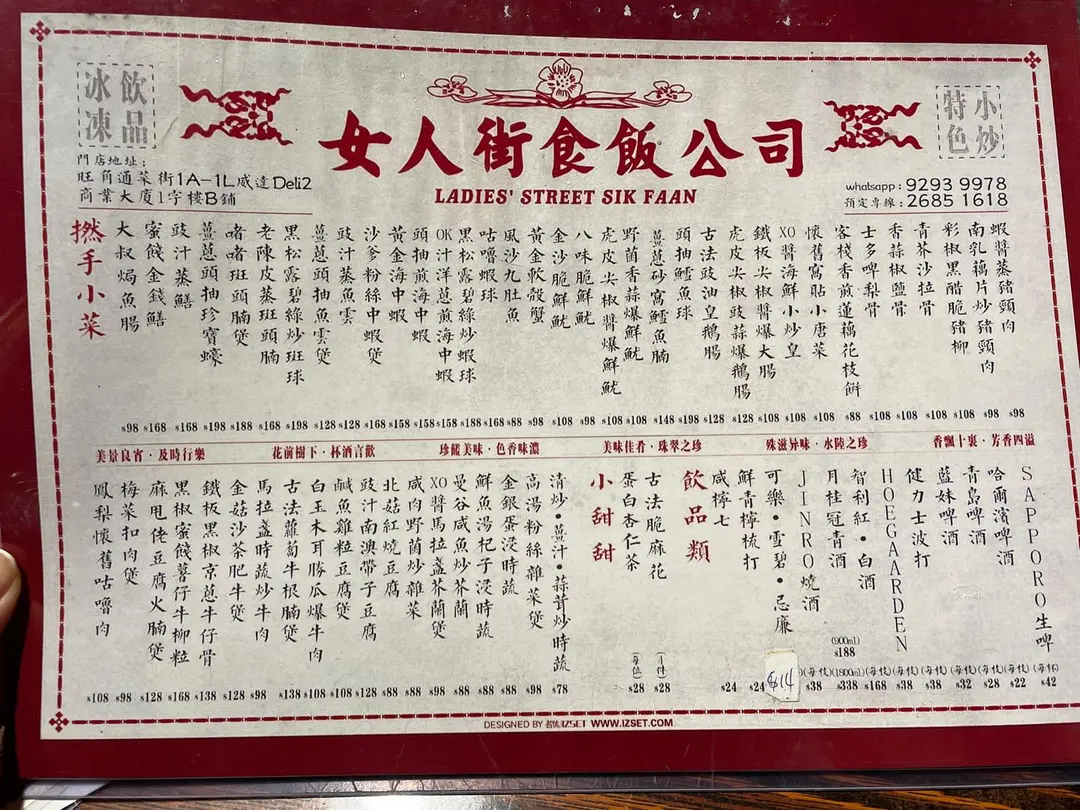 飲品
冰凍
小炒
特色
女人街食飯公司
LADIES' STREET SIK FAAN
門店地址：
旺角通菜街1A-1L威達Deli2
商業大廈1字樓B鋪
whatsapp : 9293 9978
預定專線 : 2685 1618
撚手小菜
大叔焗魚腸 $98
蜜餞金錢鱔 $168
豉汁蒸鱔 $168
薑蔥頭抽珍寶蠔 $198
啫啫斑頭腩煲 $188
老陳皮蒸斑頭腩 $168
黑松露碧綠炒斑球 $198
薑蔥頭抽魚雲煲 $128
豉汁蒸魚雲 $128
沙爹粉絲中蝦煲 $168
黃金海中蝦 $158
頭抽煎海中蝦 $158
OK汁洋蔥煎海中蝦 $158
黑松露碧綠炒蝦球 $188
咕嚕蝦球 $168
風沙九肚魚 $88
黃金軟殼蟹 $98
金沙脆鮮魷 $108
八味脆鮮魷 $98
虎皮尖椒醬爆鮮魷 $108
野菌香蒜爆鮮魷 $108
薑蔥砂窩鱈魚腩 $148
頭抽鱈魚球 $198
古法豉油皇鵝腸 $128
虎皮尖椒豉蒜爆鵝腸 $128
鐵板尖椒醬爆大腸 $108
XO醬海鮮小炒皇 $108
懷舊窩貼小唐菜 $108
客棧香煎蓮藕花枝餅 $88
士多啤梨骨 $108
香蒜椒鹽骨 $108
青芥沙拉骨 $108
彩椒黑醋脆豬柳 $108
南乳藕片炒豬頸肉 $98
蝦醬蒸豬頸肉 $98
美景良宵·及時行樂
花前樹下·杯酒言歡
珍饈美味·色香味濃
美味佳肴·珠翠之珍
殊滋异味·水陸之珍
香飄十裏·芳香四溢
鳳梨懷舊咕嚕肉 $108
梅菜扣肉煲 $98
麻甩佬豆腐火腩煲 $128
黑椒蜜餞薯仔牛柳粒 $168
鐵板黑椒京蔥牛仔骨 $138
金菇沙茶肥牛煲 $128
馬拉盞時蔬炒牛肉 $98
古法蘿蔔牛根腩煲 $138
白玉木耳勝瓜爆牛肉 $108
鹹魚雞粒豆腐煲 $108
豉汁南澳帶子豆腐 $128
北菇紅燒豆腐 $88
咸肉野菌炒雜菜 $88
XO醬馬拉盞芥蘭煲 $98
曼谷咸魚炒芥蘭 $88
鮮魚湯杞子浸時蔬 $88
金銀蛋浸時蔬 $88
高湯粉絲雜菜煲 $98
清炒·薑汁·蒜茸炒時蔬 $78
小甜甜
蛋白杏仁茶 (每位) $28
古法脆麻花 (1件) $28
飲品類
咸檸七 $24
鮮青檸梳打 $24
可樂·雪碧·忌廉 $14
JINRO燒酒 (每枝) $38
月桂冠青酒 (900ml) $188 (1800ml) $338
智利紅·白酒 (每枝) $168
HOEGAARDEN (每枝) $38
健力士波打 (每枝) $38
藍妹啤酒 (每枝) $32
青島啤酒 (每枝) $28
哈爾濱啤酒 (每枝) $22
SAPPORO生啤 (每杯) $42
DESIGNED BY IZSET WWW.IZSET.COM